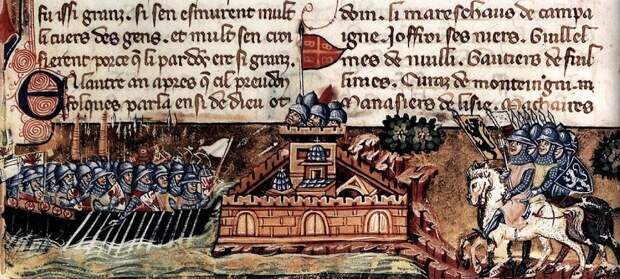 fu issi granz. si sen esmurent mult
li cuers des gens. et mult sen croi
sierent porce q̃ li pardõs ere si granz.
En lautre an apres q̃ cil preudom
folques parla ensi de dieu ot
doin. li mareschaus de campa
igne. Joffrois ses niers. Guillel
mes de nuilli. Gautiers de fuil
limes. Eurar de monteingni.
Manasiers de lisle. Machaires